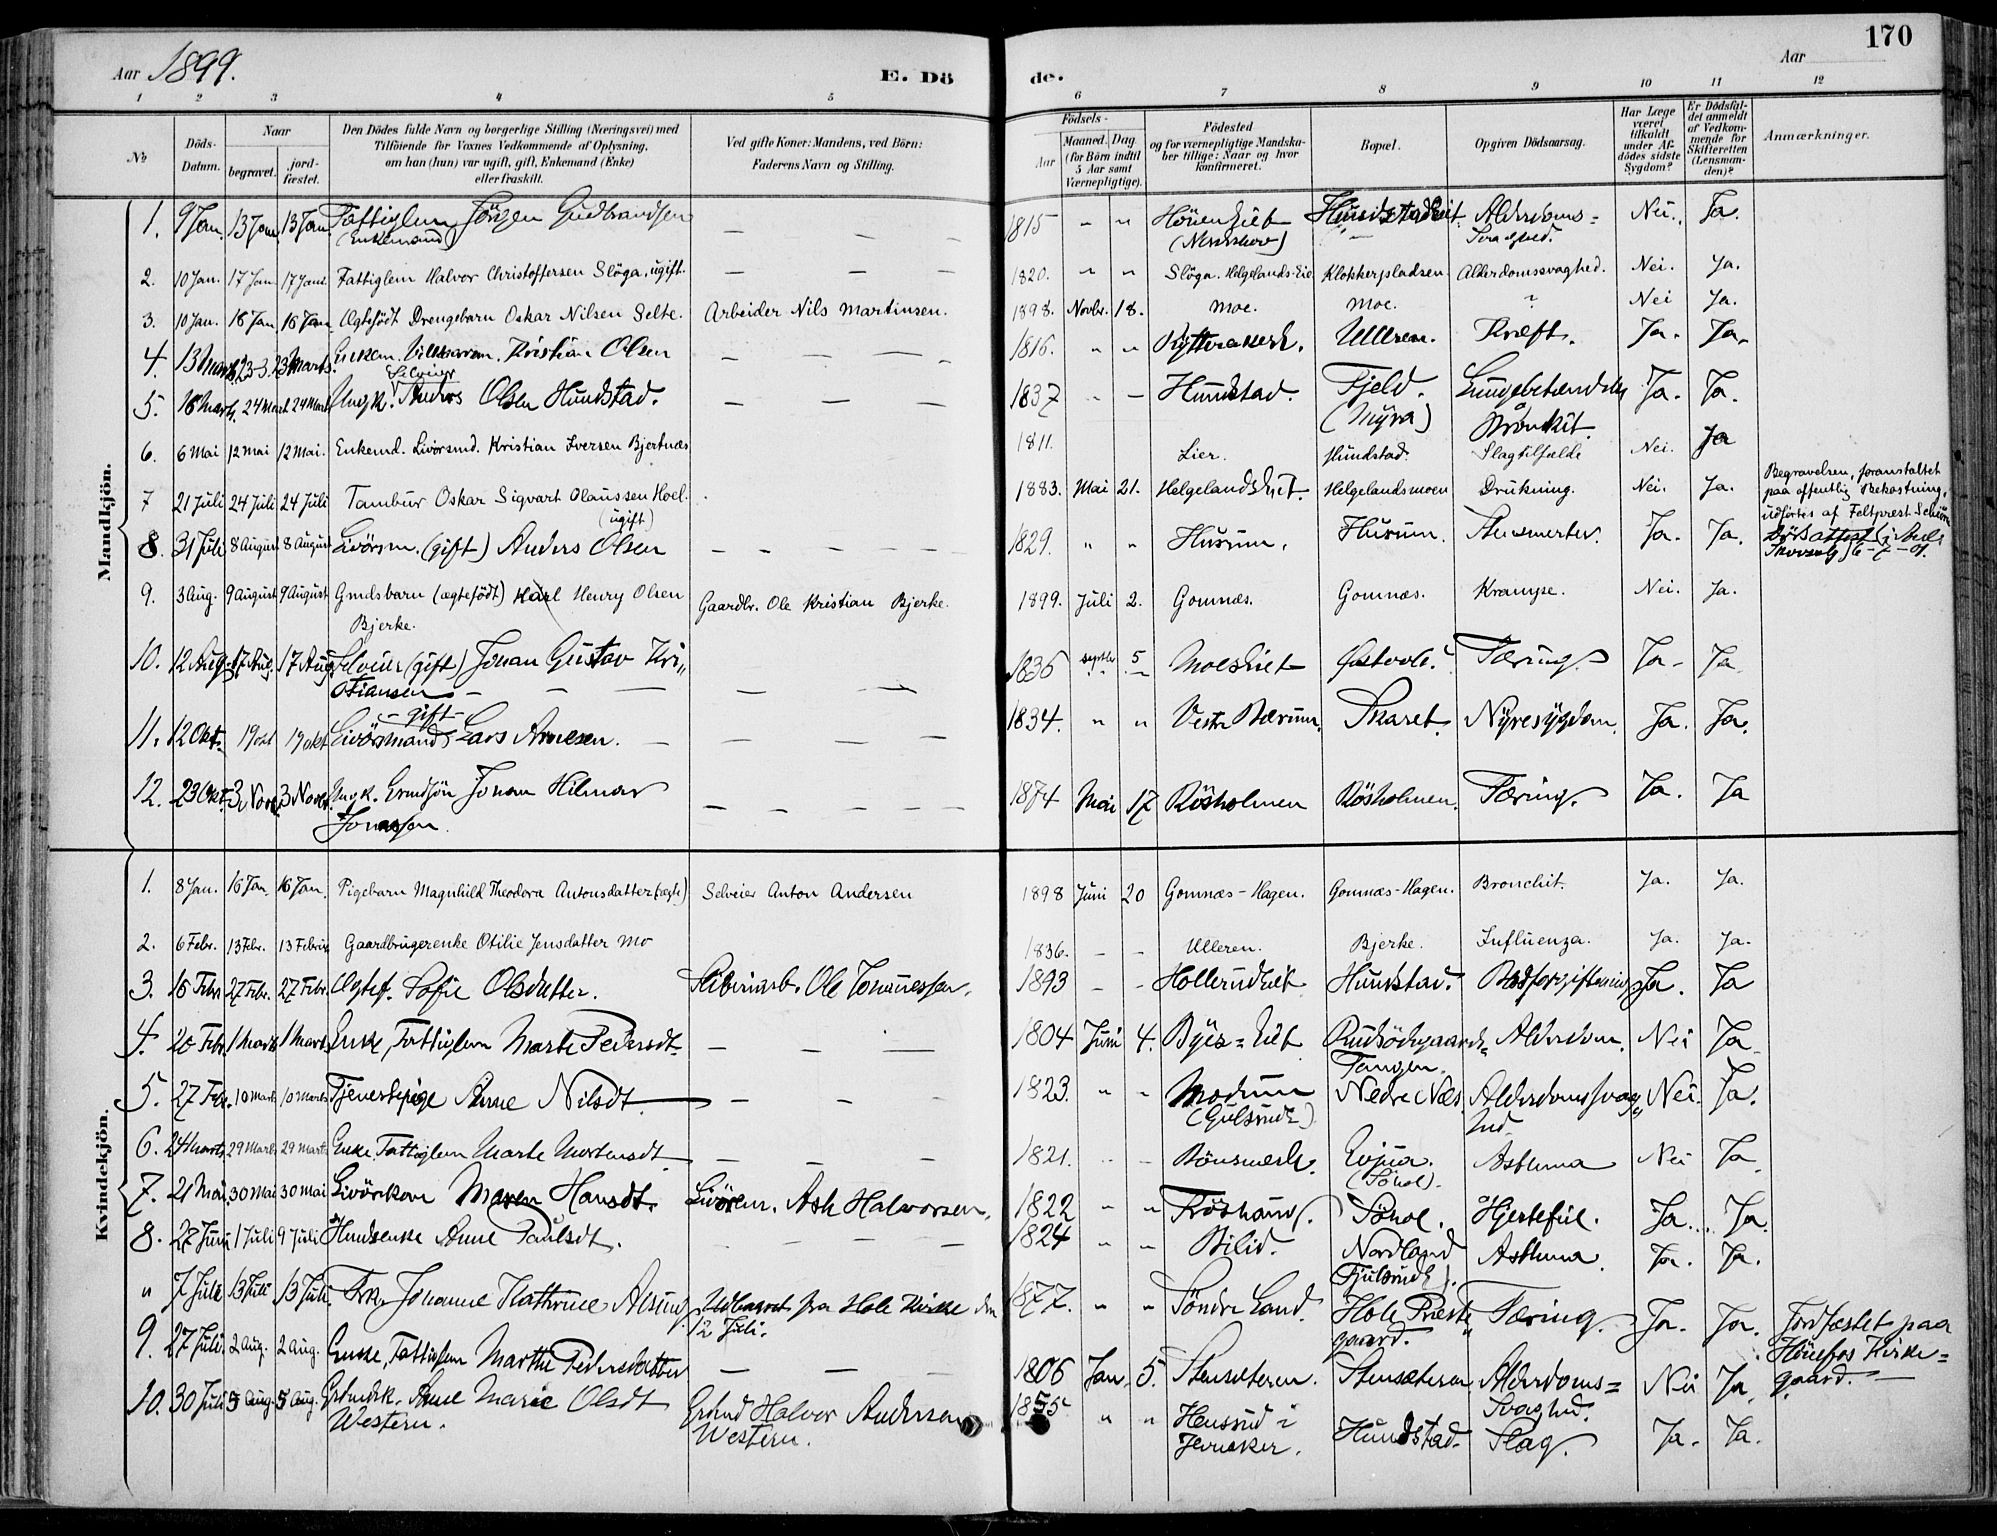 170
Aar 1899. E. Dö de. Aar
1 2 3 4 5 6 7 8 9 10 11 12
№
Döds-Datum.
Naar
begravet.
jord-fæstet.
Den Dödes fulde Navn og borgerlige Stilling (Næringsvei) med
Tilföiende for Voxnes Vedkommende af Oplysning,
om han (hun) var ugift, gift, Enkemand (Enke)
eller fraskilt.
Ved gifte Koner: Mandens, ved Börn:
Faderens Navn og Stilling.
Födsels-
Aar
Maaned. Dag.
(for Börn indtil
5 Aar samt
Værnepligtige).
Födested
og for værnepligtige Mandska-
ber tillige: Naar og hvor
konfirmeret.
Bopæl.
Opgiven Dödsaarsag.
Har Læge
været
tilkaldt
under Af-
dödes sidste
Sygdom?
Er Dödsfal-
det anmeldt
af Vedkom-
mende for
Skifteretten
(Lensman-
den)?
Anmærkninger.
Mandkjön.
1. 9 Jan. 13 Jan. 13 Jan. Fattiglem Jörgen Gudbrandsen (Enkemand) — — — 1815 " " Hönen Eiet Hundstadeiet Alderdoms= Nei. Ja.
2. 10 Jan. 17 Jan. 17 Jan. Fattiglem Halvor Christoffersen Slöga, ugift. — — — 1820. " " Slöga. Helgelands-Eie Klokkerpladsen Alderdomssvaghed. Nei. Ja.
3. 10 Jan. 16 Jan. 16 Jan. Ægtefödt Drengebarn Oskar Nilsen Selte. Arbeider Nils Martinsen. 1898. Novbr. 18. Moe. Moe. ? Nei Ja.
4. 13 Marts 23-3. 23 Marts. Enkem. Kristian Olsen — — — 1816. " " Ulleren. Kræft. Ja. Ja.
5. 16 Marts. 24 Marts 24 Marts Ungk. Selveier Anders Olsen Hundstad. — — — 1837 " — Hundstad. Fjeld. (Myra) Lungebetændelse Bronkit. Ja. Ja.
6. 6 Mai 12 Mai 12 Mai. Enkemd. Livörsmd. Kristian Iversen Bjertnæs 1811. Lier. Hundstad. Slagtilfælde Nei. Ja
7 21 Juli 24 Juli 24 Juli Tambur Oskar Sigvart Olaussen Hoel. (ugift) 1883. Mai 21. Helgelandseiet. Helgelandsmoen Drukning. Nei. Ja. Begravelsen, foranstaltet
paa offentlig Bekostning,
udförtes af Feltprest
8. 31 Juli 8 August 8 August Livörsm. (gift) Anders Olsen — — — — 1829. " " Husum. Husum. Ja. Ja.
9. 3 Aug. 9 August 9 August Gmdsbarn (ægtefödt) Karl Henry Olsen Bjerke. Gaardbr. Ole Kristian Bjerke. 1899. Juli 2. Gomnæs. Gomnæs. Krampe. Nei. Ja.
10. 12 Aug. 17 Aug. 17 Aug. Selveier (gift) Johan Gustav Kri„stiansen — — — — — 1836 Septbr 5 Moeseiet Tæring. Ja. Ja
11. 12 Okt. 19 okt 19 okt Livörsmand -gift- Lars Arnesen. — — — — 1834. " " Vestre Bærum. Skaret. Nyresygdom. Ja. Ja.
12. 23 Okt. 3 Novr. 3 Novbr. Ungk. Grmdsön Johan Hilmar Jonassen. — — — — 1874 Mai 17 Rösholmen Rösholmen. Tæring. Ja. Ja
Kvindekjön.
1. 8 Jan. 16 Jan. 16 Jan. Pigebarn Magnhild Theodora Antonsdatter (ægte) Selveier Anton Andersen 1898 Juni 20 Gomnæs-Hagen. Gomnæs-Hagen. Bronchit. Ja. Ja.
2. 6 Febr. 13 Febr. 13 Februar Gaardbrugerenke Otilie Jensdatter Mo 1836. — — Ulleren. Bjerke. Influenza. Ja. Ja.
3. 16 Febr. 27 Febr. 27 Febr. Ægtef. Sofie Olsdatter. Sliberiarb. Ole Johannessen. 1893 — — Hollerudeiet Hundstad. Blodforgiftning Ja. Ja
4. 20 Febr. 1 Marts 1 Marts Enke, Fattiglem Marte Pedersdt. — — — 1804 Juni 4. Byes=Eiet Alderdom. Nei Ja.
5. 27 Febr. 10 Marts 10 Marts Tjenestepige Anne Nilsdt. — — — 1823. " " Modum (Gulsrud) Nedre Næs. Alderdomssvag„hed Nei. Ja.
6. 24 Marts. 29 Marts. 29 Marts Enke, Fattiglem Marte Mortensdt. — — — 1821. — — Bönsnæs. Asthma Nei Ja.
7. 21 Mai. 30 Mai 30 Mai Livörskone Maren Hansdt. Livörsm. Ask Halvorsen. 1822 " " Hjertefeil. Ja. Ja.
8. 27 Juni 1 Juli 9 Juli Husmdsenke Anne Paulsdt. — — — — 1824 " " Bilid. Nordland Asthma. Ja. Ja.
" 7 Juli 13 Juli 13 Juli. Frk. Johanne Kathrine Alsing. Udbaaret fra Hole Kirke den 12 Juli. 1877. " " Söndre Land. Hole Præste„gaard. Tæring. Ja. Ja. Jordfæstet paa
Hönefos Kirke=
gaard. —
9. 27 Juli. 2 Aug. 2 Aug. Enke, Fattiglem Marthe Pedersdatter — — — 1806 Jan. 5. Stenseteren. Stenseteren Alderdoms=Svaghed. Nei Ja.
10. 30 Juli 5 Aug. 5 Aug. Anne Marie Olsdt Western. Halvor Andersen Western. 1855 " " Hensrud i Jevnaker. Hundstad. Slag. Ja. Ja.